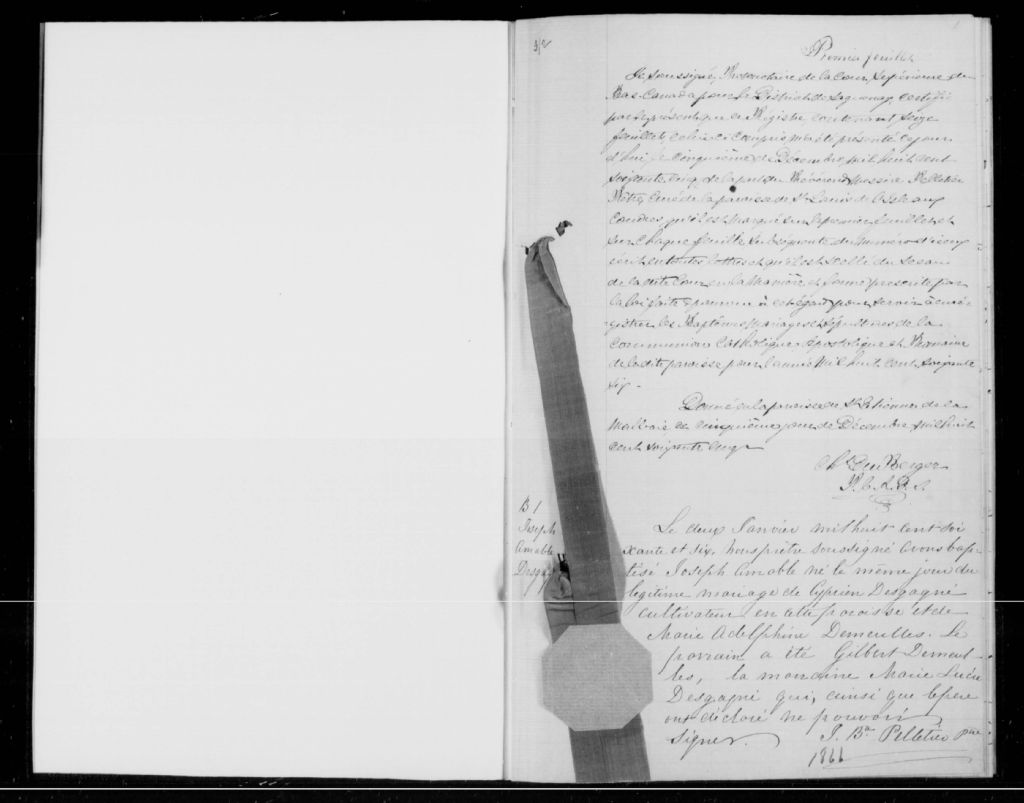 Premier feuillet
Je Soussigné, Protonotaire de la Cour Supérieure du
Bas-Canada pour le District de Saguenay, certifie
par les présentes que ce Registre, contenant seize
feuillets, celui-ci compris m'a été présenté ce jour
d'hui le Cinquième de Décembre mil huit cent
soixante cinq de la part du Révérend Messire Pelletier
Prêtre, Curé de la paroisse de St Louis de l'Isle aux
Coudres qu'il est marqué sur le premier feuillet et
sur chaque feuillet subséquent du numéro d'iceux
écrit en toutes lettres et qu'il est scellé du Sceau
de la dite Cour en la manière et forme prescrite par
la loi faite et pourvue à cet égard pour servir à enré-
gistrer les Baptêmes Mariages et Sépultures de la
Communion Catholique Apostolique et Romaine
de la dite paroisse pour l'année Mil huit cent soixante
six -
Donné en la paroisse de St Etienne de la
Malbaie ce cinquième jour de Décembre mil huit
cent soixante cinq
Chs Du Berger
P. C. S.
B 1
Joseph
Amable
Desgagné
Le deux Janvier mil huit cent soi
xante et six, nous prêtre soussigné avons bap-
tisé Joseph Amable né le même jour du
légitime mariage de Cyprien Desgagné
cultivateur en cette paroisse et de
Marie Adelphine Demeulles. Le
parrain a été Gilbert Demeul-
les, la marraine Marie Lucie
Desgagné qui, ainsi que le père
ont déclaré ne pouvoir
signer.
J. Bte Pelletier ptre
1866